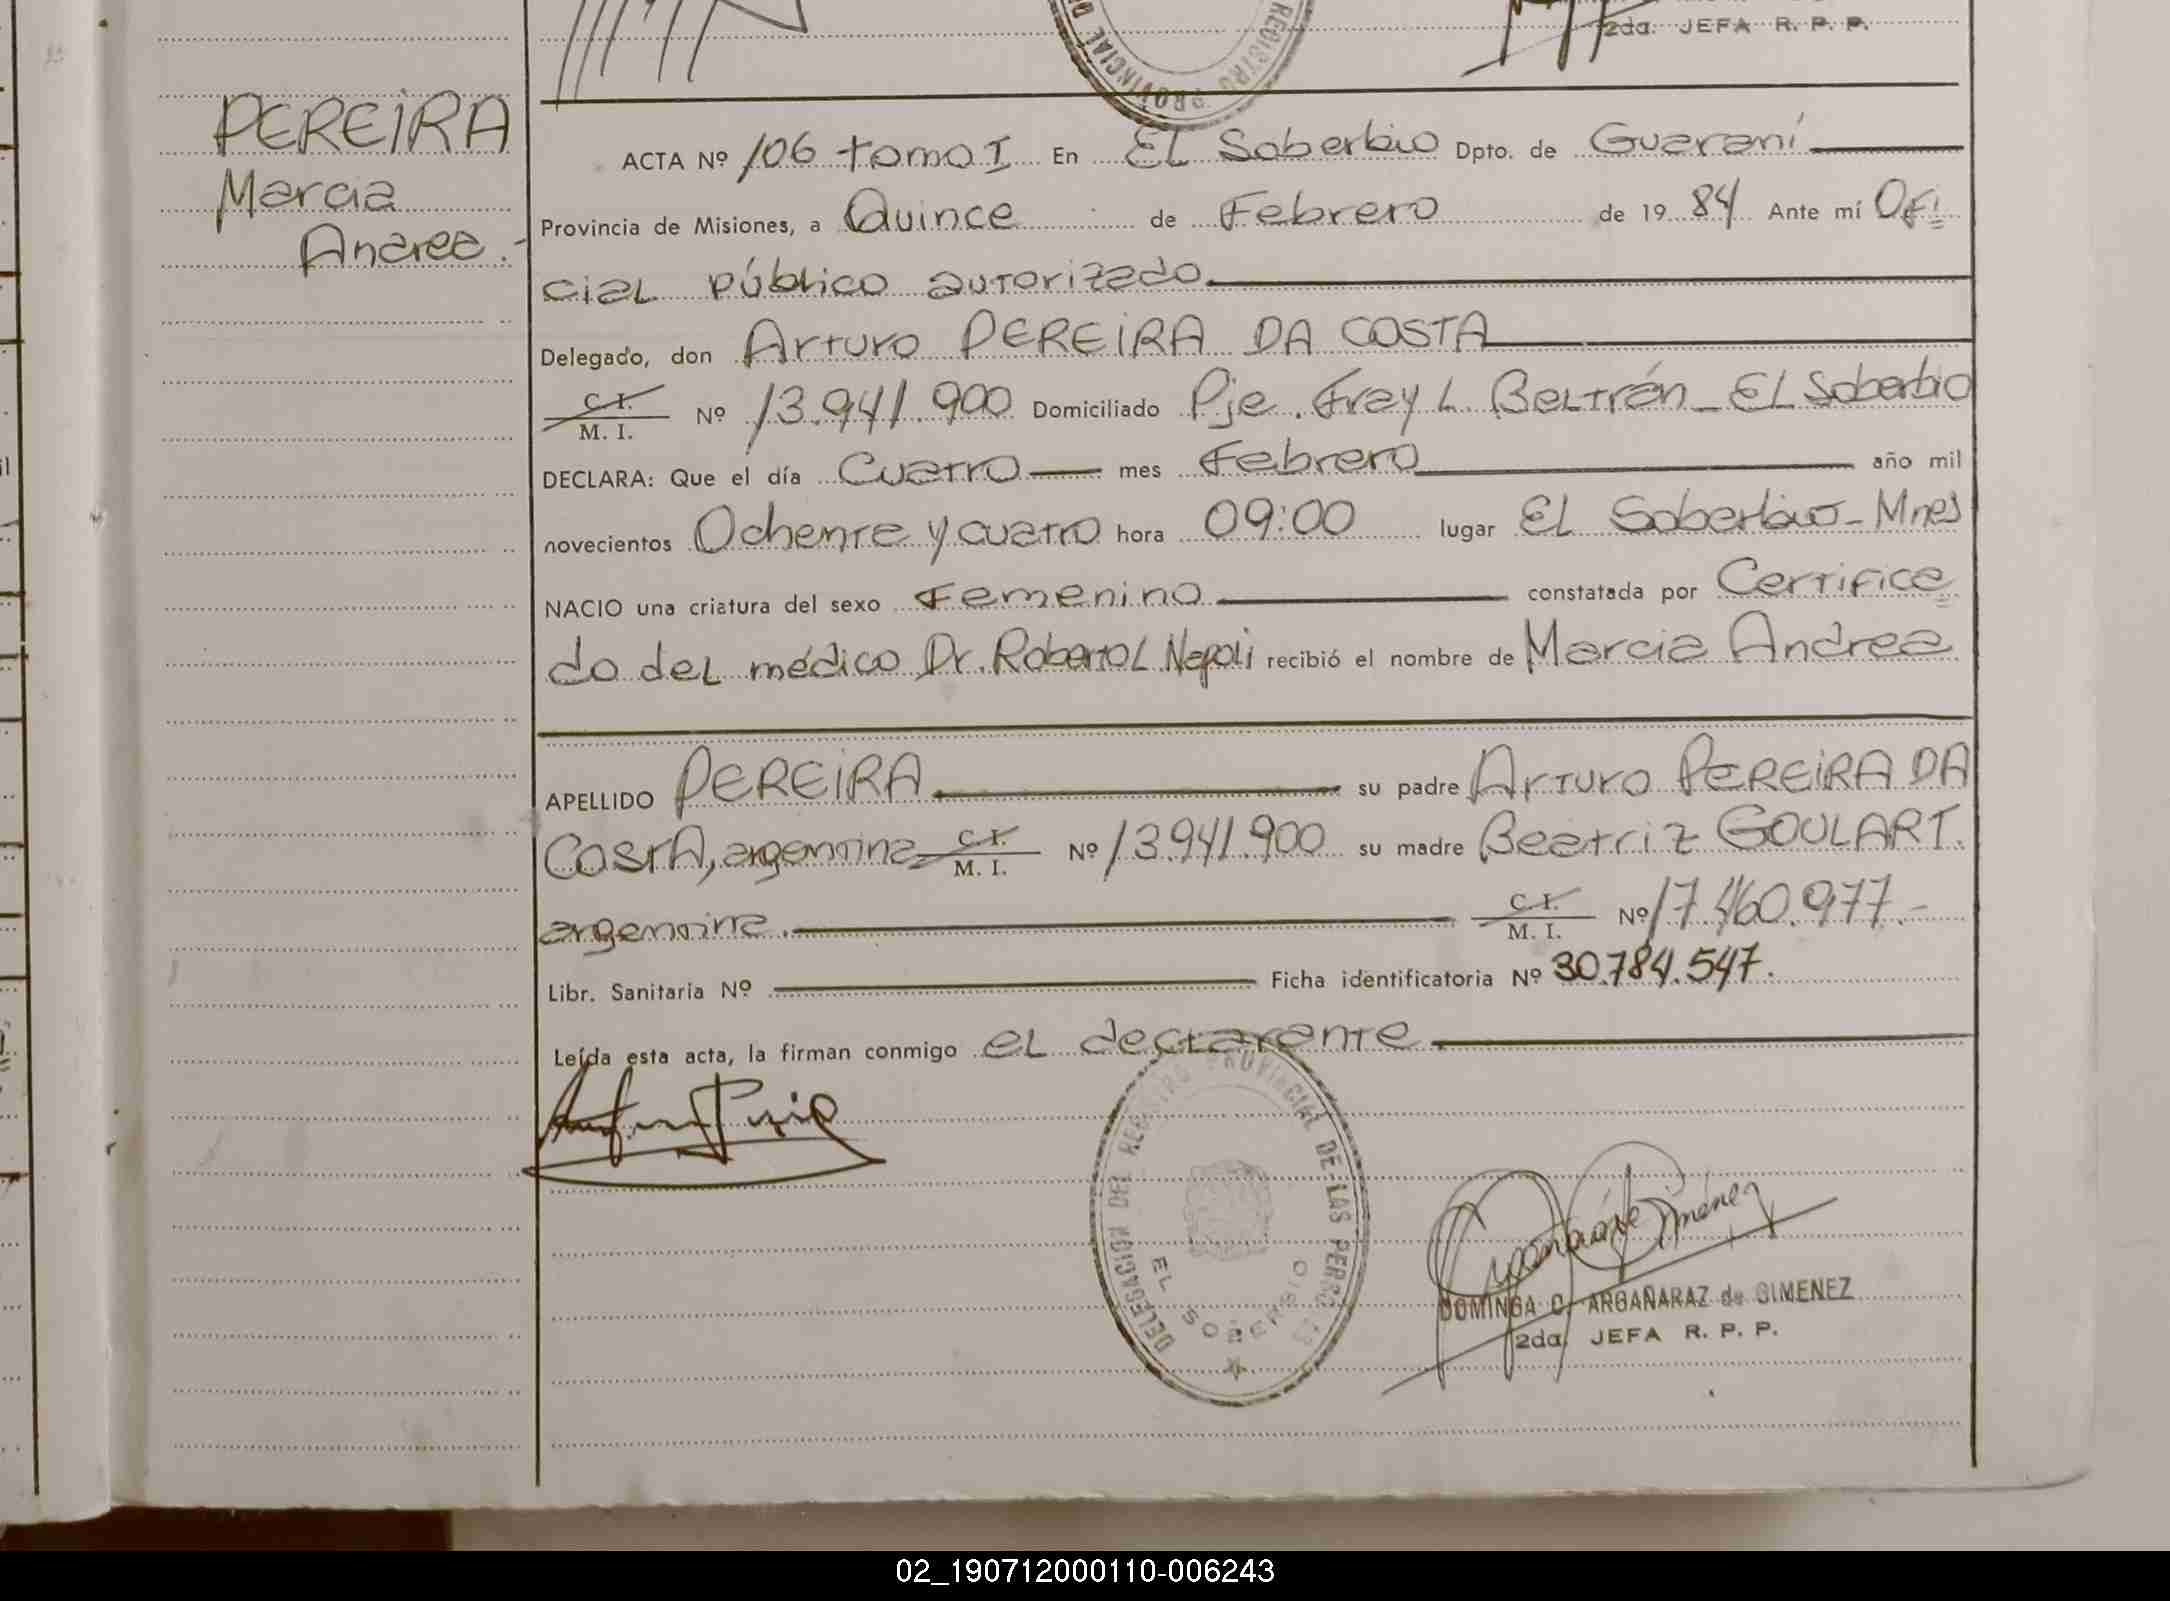 2da. JEFA R. P. P.
REGISTRO PROVINCIAL DE
PEREIRA
Marcia
Andrea.-
ACTA Nº 106 tomo I En EL Soberbio Dpto. de Guaraní
Provincia de Misiones, a Quince de Febrero de 19 84 Ante mí Ofi
cial público autorizado
Delegado, don Arturo PEREIRA DA COSTA
C. I.
M. I. Nº 13.941.900 Domiciliado Pje. Fray L. Beltrán - EL Soberbio
DECLARA: Que el día Cuatro mes Febrero año mil
novecientos Ochenta y cuatro hora 09:00 lugar El Soberbio - Mnes
NACIO una criatura del sexo Femenino constatada por Certifica
do del médico Dr. Roberto L Napoli recibió el nombre de Marcia Andrea
APELLIDO PEREIRA su padre Arturo PEREIRA DA
COSTA, argentina C. I. M. I. Nº 13.941.900 su madre Beatriz GOULART.
argentina. C. I. M. I. Nº 17.460.977.-
Libr. Sanitaria Nº Ficha identificatoria Nº 30.784.547.
Leída esta acta, la firman conmigo el declarante
DELEGACION DEL REGISTRO PROVINCIAL DE LAS PERSONAS
EL SOBERBIO
DOMINGA C. ARGAÑARAZ de GIMENEZ
2da. JEFA R. P. P.
02_190712000110-006243